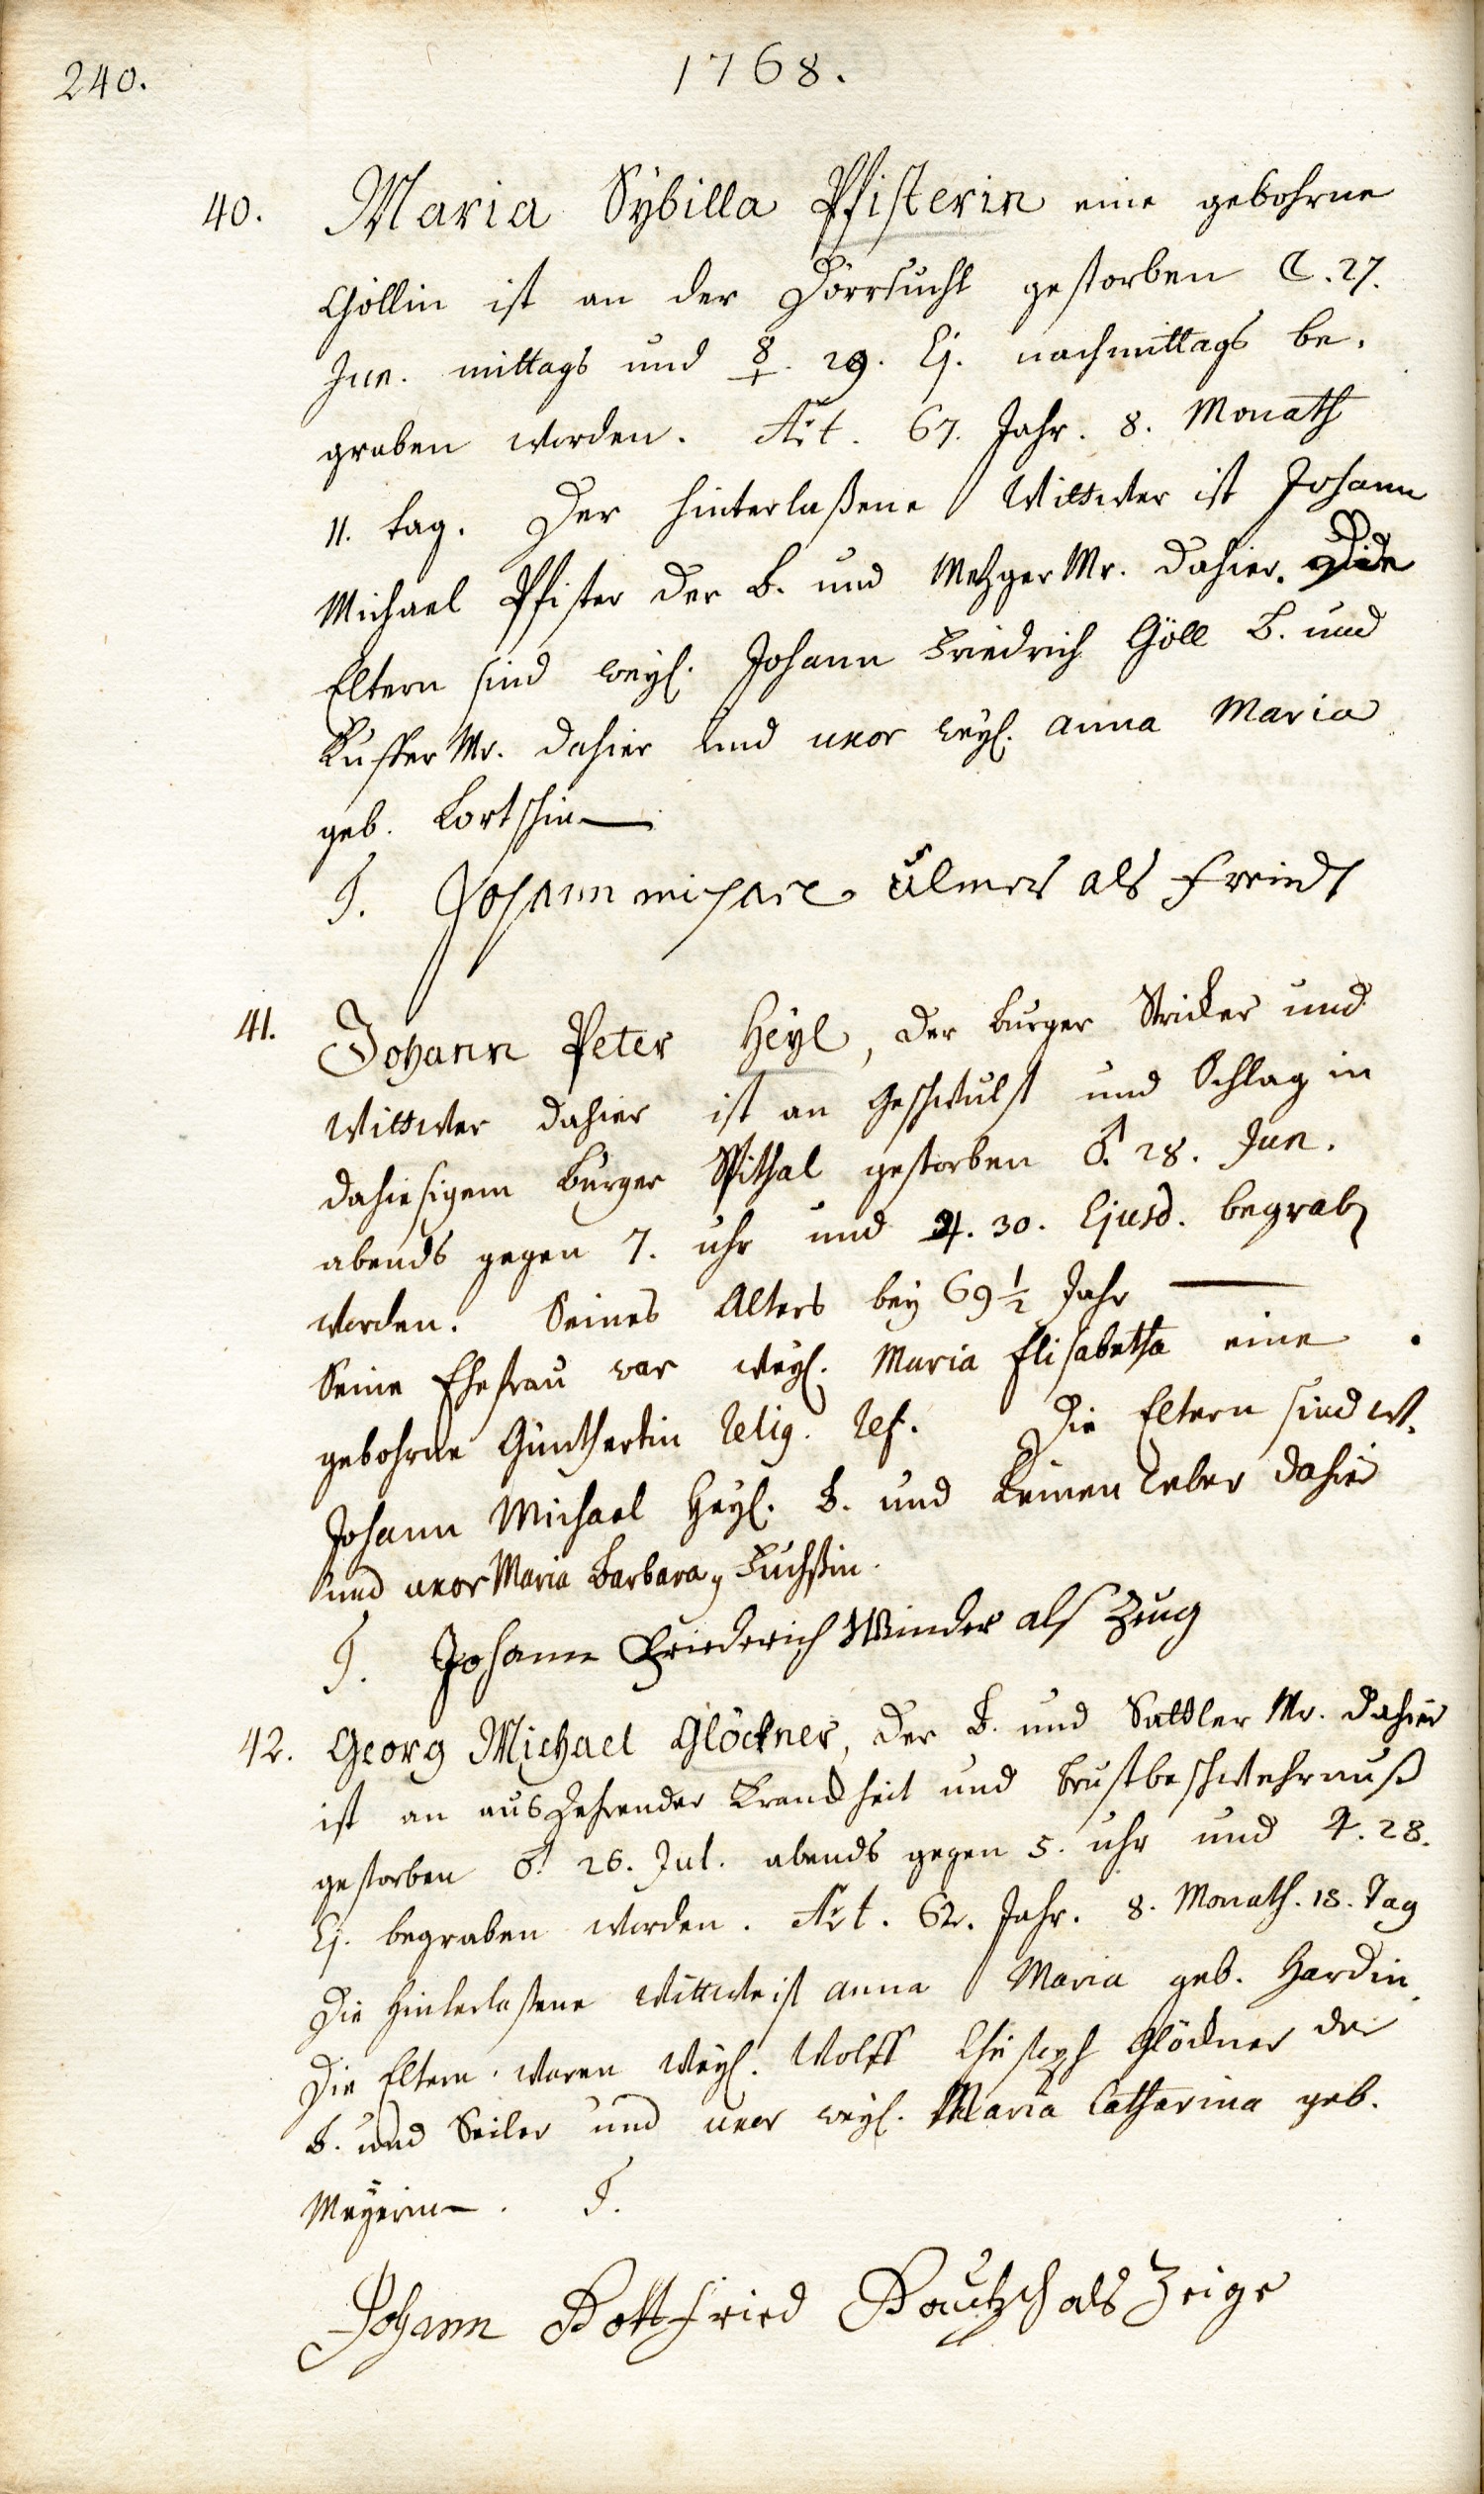 240.
1768.
40. Maria Sÿbilla Pfisterin eine gebohrne
Göllin ist an der Dörrsucht gestorben ☾. 27.
Jun. mittags und ☿. 29. Ej. nachmittags be-
graben worden. Æt. 67. Jahr. 8. Monath
11. tag. Der hinterlaßene Wittwer ist Johann
Michael Pfister der B. und Metzger Mr. dahier. Die
Eltern sind weyl. Johann Friedrich Göll B. und
Kuffer Mr. dahier und uxor weyl. Anna Maria
geb. Lortschin
T. Johann michael Ulmer als freindt
41. Johann Peter Heyl, der burger Stricker und
Wittwer dahier ist an Geschwulst und Schlag in
dahiesigem Burger Spithal gestorben ♂. 28. Jun.
abends gegen 7. uhr und ♃. 30. Ejusd. begraben
worden. Seines Alters bey 69 1/2 Jahr
Seine Ehefrau war weyl. Maria Elisabetha eine
gebohrne Günthertin relig. ref. Die Eltern sind w.
Johann Michael Heyl. B. und Leinenweber dahier
und uxor Maria Barbara, Fuchßin.
T. Johann Friederich Winder als Zeug
42. Georg Michael Glöckner, der B. und Sattler Mr. dahier
ist an auszehrender Kranckheit und brustbeschwehrnuß
gestorben ♂. 26. Jul. abends gegen 5. uhr und ♃. 28.
Ej. begraben worden. Æt. 62. Jahr. 8. Monath. 18. Tag
Die hinterlaßene Wittwe ist Anna Maria geb. Hardin.
Die Eltern waren weyl. Wolff Christoph Glöckner der
B. und Seiler und uxor weyl. Maria Catharina geb.
Meyerin. T.
Johann Gottfried Bautzsch als Zeige